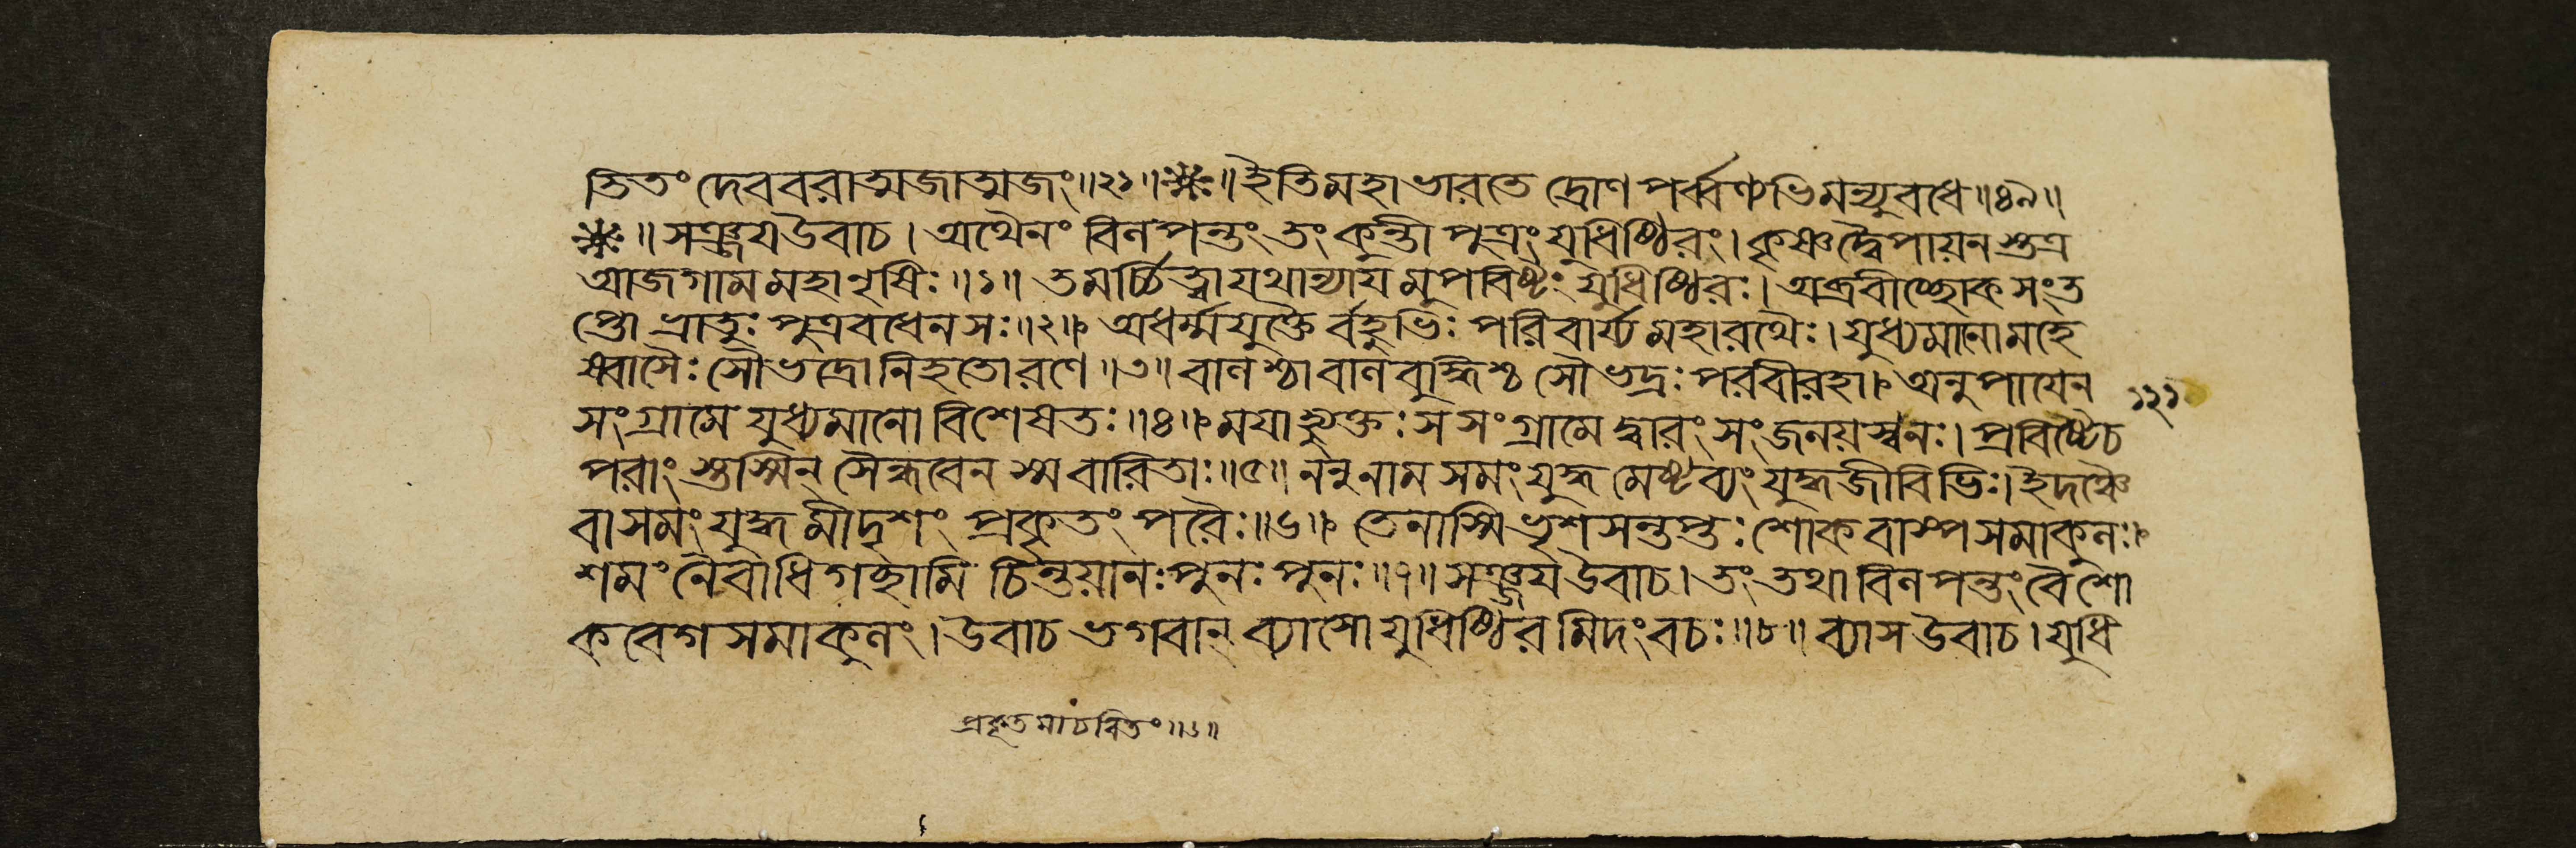 তিতং দেববরাত্মজাত্মজং॥২১॥❋ঃ॥ইতিমহাভারতে দ্রোণপর্ব্বণ্যভিমন্যুবধে॥৪৯॥
❋ঃ॥সঞ্জয়উবাচ।অথৈনং বিলপন্তং তং কুন্তী পুত্রং যুধিষ্ঠিরং।কৃষ্ণদ্বৈপায়নস্তত্র
আজগামমহানৃষিঃ॥১॥তমর্চ্চিত্বাযথান্যায়মুপবিষ্টং যুধিষ্ঠিরঃ।অব্রবীচ্ছোকসংত
প্তো ভ্রাতুঃ পুত্রবধেনসঃ॥২॥অধর্ম্মযুক্তৈর্বহুভিঃ পরিবার্য্যমহারথৈঃ।যুধ্যমানোমহে
ষ্বাসৈঃ সৌভদ্রোনিহতোরণে॥৩॥বালশ্চাবালবুদ্ধিশ্চ সৌভদ্রঃ পরবীরহা।অনুপায়েন ১২১
সংগ্রামে যুধ্যমানো বিশেষতঃ॥৪॥ময়াহ্যুক্তঃ সসংগ্রামে দ্বারং সংজনয়স্বনঃ।প্রবিষ্টেচ
পরাং স্তস্মিন্ সৈন্ধবেনস্মবারিতাঃ॥৫॥ননুনামসমং যুদ্ধমেষ্টব্যং যুদ্ধজীবিভিঃ।ইদঞ্চৈ
বাসমং যুদ্ধমীদৃশং প্রকৃতং পরৈঃ॥৬॥তেনাস্মিভৃশসন্তপ্তঃ শোকবাষ্পসমাকুলঃ।
শমং নৈবাধিগচ্ছামি চিন্তয়ানঃ পুনঃ পুনঃ॥৭॥সঞ্জয়উবাচ।তং তথাবিলপন্তং বৈশো
কবেগসমাকুলং।উবাচ ভগবান্ ব্যাসোযুধিষ্ঠিরমিদং বচঃ॥৮॥ব্যাসউবাচ।যুধি
প্রকৃতমাচরিতং॥৬॥